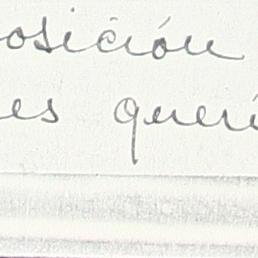 osición
es querí